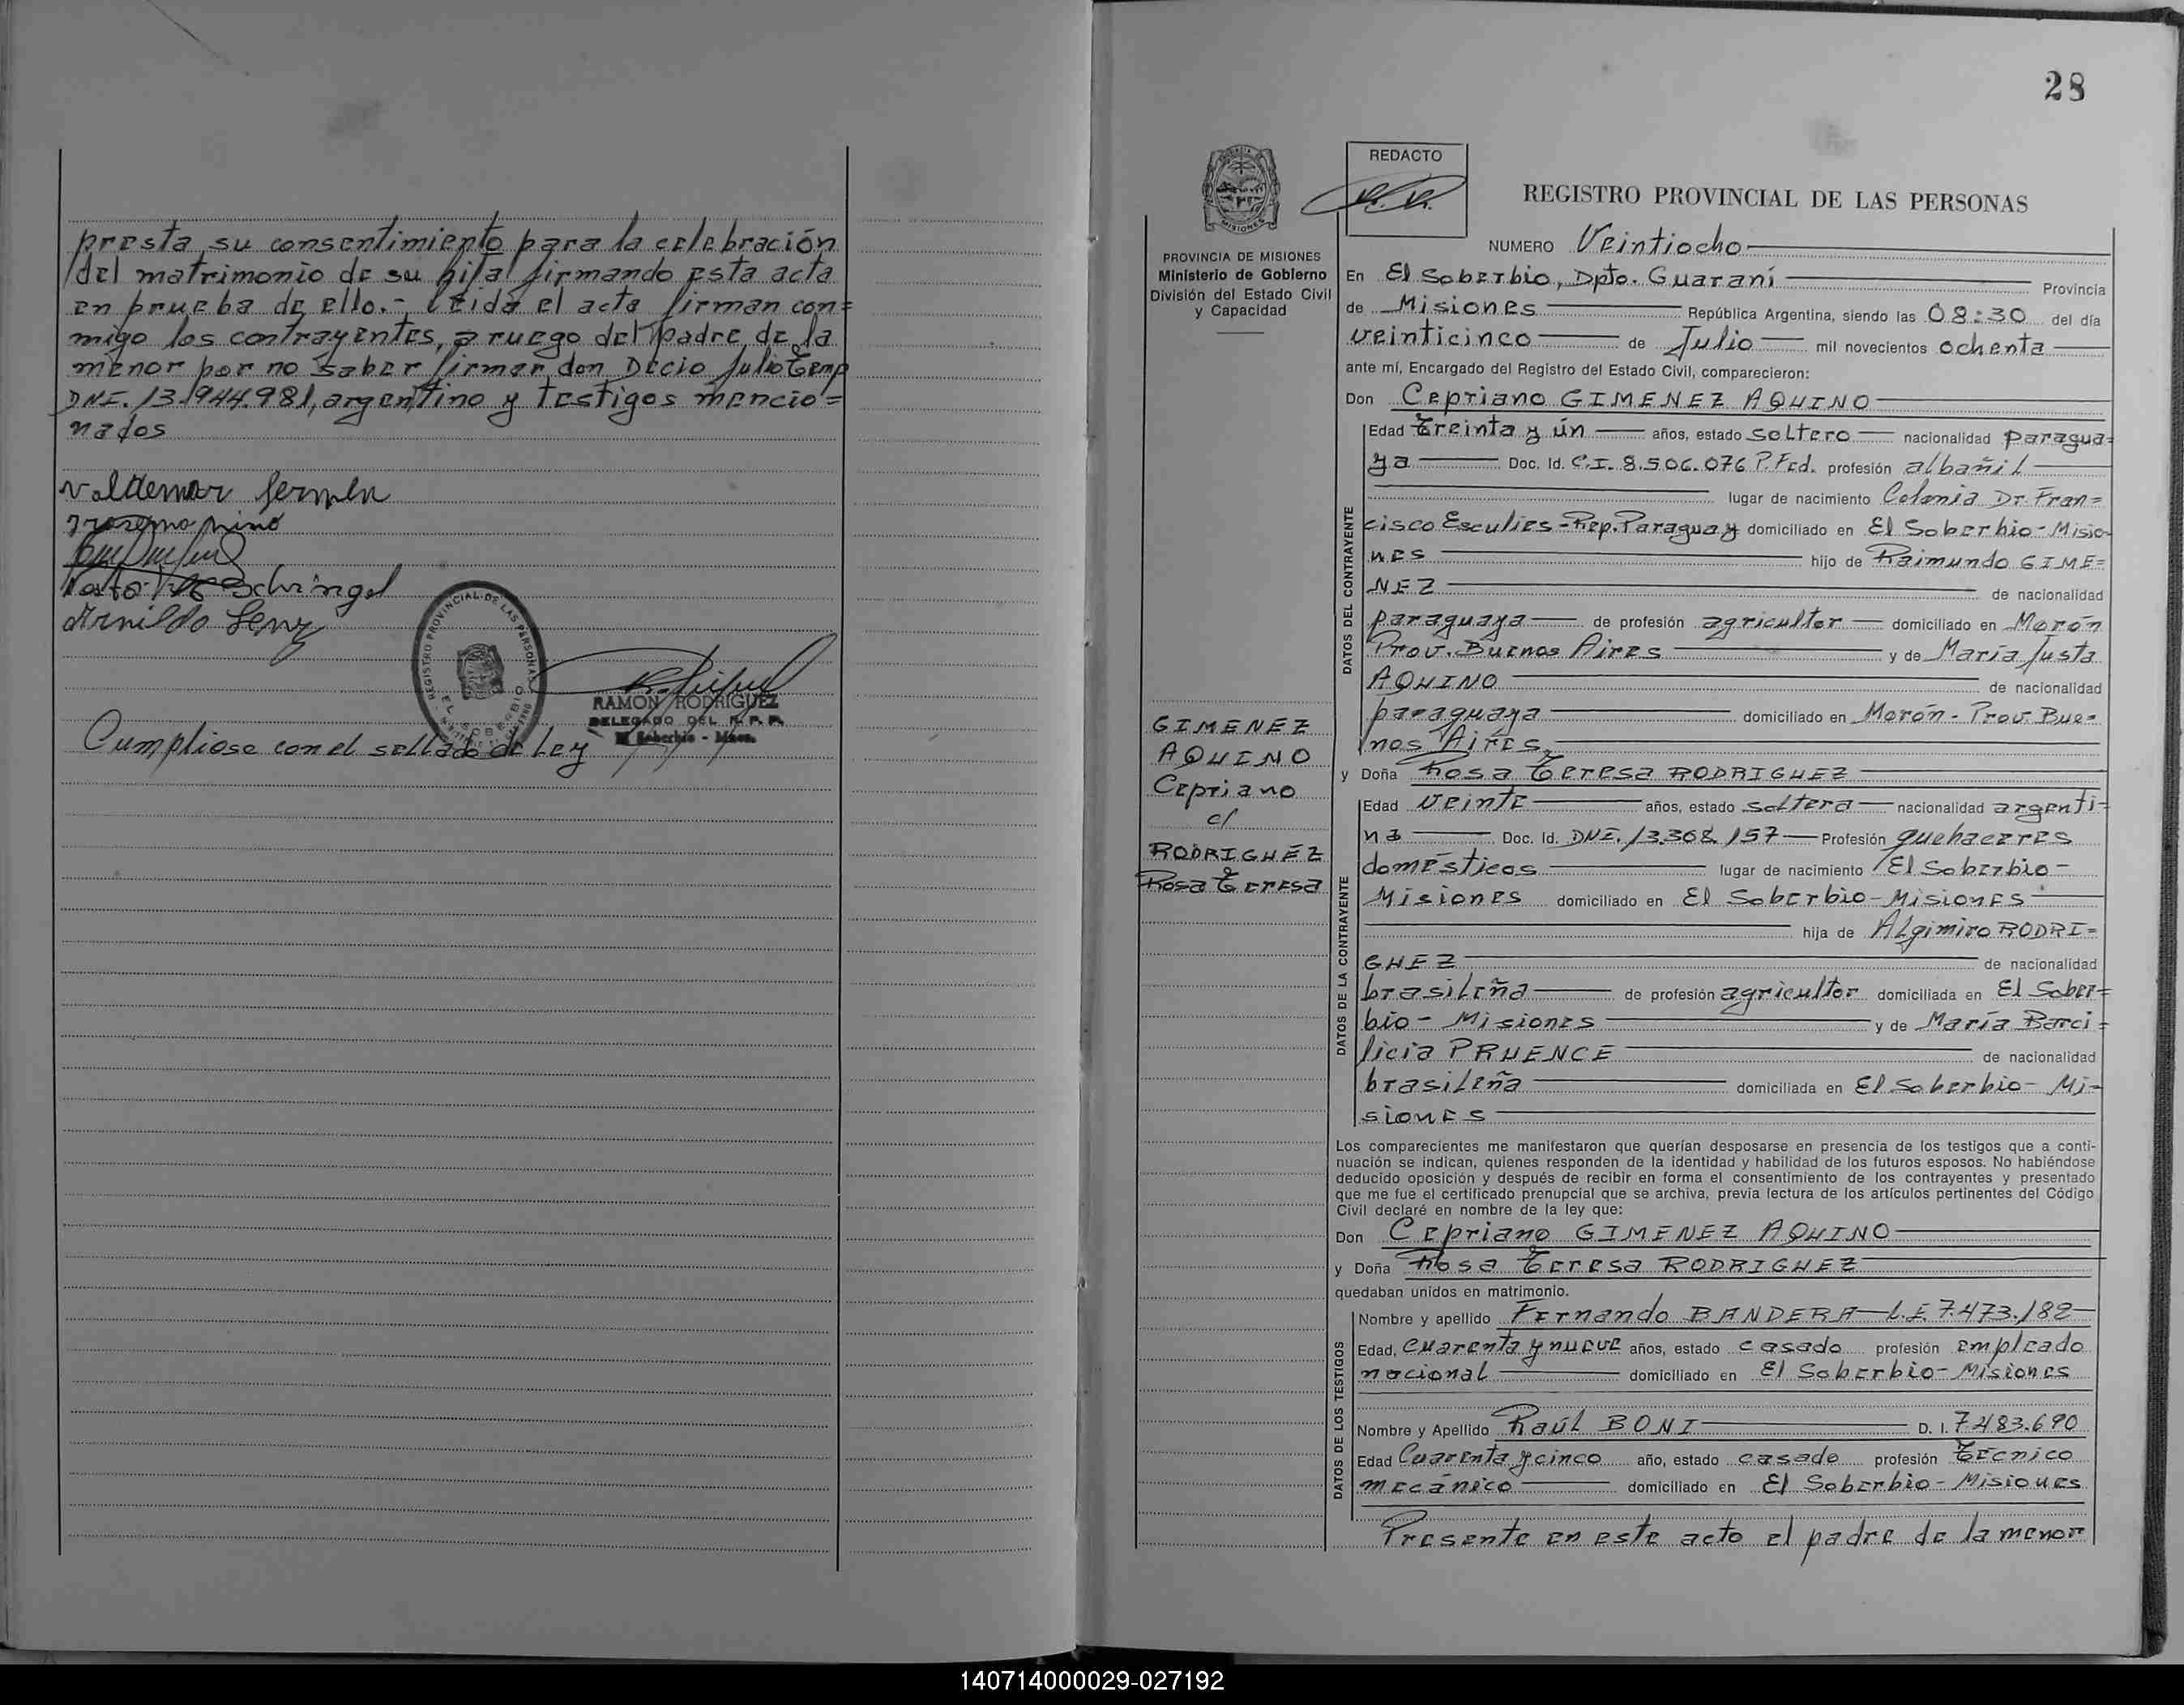 presta su consentimiento para la celebración
del matrimonio de su hija firmando esta acta
en prueba de ello.- Leida el acta firman con=
migo los contrayentes, a ruego del padre de la
menor por no saber firmar don Decio Julio
DNI. 13.944.981, argentino y testigos mencio=
nados
Valdemar
Schringel
Arnildo
REGISTRO PROVINCIAL DE LAS PERSONAS
EL SOBERBIO
RAMON RODRIGUEZ
DELEGADO DEL R. P. P.
El Soberbio - Mnes.
Cumpliose con el sellado de Ley
28
REDACTO
REGISTRO PROVINCIAL DE LAS PERSONAS
PROVINCIA DE MISIONES
Ministerio de Gobierno
División del Estado Civil
y Capacidad
NUMERO Veintiocho
En El Soberbio, Dpto. Guaraní Provincia
de Misiones República Argentina, siendo las 08:30 del día
veinticinco de Julio mil novecientos ochenta
ante mí, Encargado del Registro del Estado Civil, comparecieron:
Don Cepriano GIMENEZ AQUINO
DATOS DEL CONTRAYENTE
Edad Treinta y ún años, estado soltero nacionalidad paragua=
ya Doc. Id. C.I. 8.506.076 P.Fed. profesión albañil
lugar de nacimiento Colonia Dr. Fran=
cisco Esculies - Rep. Paraguay domiciliado en El Soberbio - Misio-
nes hijo de Raimundo GIME=
NEZ de nacionalidad
paraguaya de profesión agricultor domiciliado en Morón
Prov. Buenos Aires y de María Justa
AQUINO de nacionalidad
paraguaya domiciliado en Morón - Prov. Bue=
nos Aires
y Doña Rosa Teresa RODRIGUEZ
GIMENEZ
AQUINO
Cepriano
c/
RODRIGUEZ
Rosa Teresa
DATOS DE LA CONTRAYENTE
Edad veinte años, estado soltera nacionalidad argenti=
na Doc. Id. DNI. 13.308.157 Profesión quehaceres
domésticos lugar de nacimiento El Soberbio -
Misiones domiciliado en El Soberbio - Misiones
hija de Algimiro RODRI=
GUEZ de nacionalidad
brasileña de profesión agricultor domiciliada en El Sober=
bio - Misiones y de María Barci=
licia PRUENCE de nacionalidad
brasileña domiciliada en El Soberbio - Mi-
siones
Los comparecientes me manifestaron que querían desposarse en presencia de los testigos que a conti-
nuación se indican, quienes responden de la identidad y habilidad de los futuros esposos. No habiéndose
deducido oposición y después de recibir en forma el consentimiento de los contrayentes y presentado
que me fue el certificado prenupcial que se archiva, previa lectura de los artículos pertinentes del Código
Civil declaré en nombre de la ley que:
Don Cepriano GIMENEZ AQUINO
y Doña Rosa Teresa RODRIGUEZ
quedaban unidos en matrimonio.
DATOS DE LOS TESTIGOS
Nombre y apellido Fernando BANDERA L.E. 7.473.182
Edad, Cuarenta y nueve años, estado casado profesión empleado
nacional domiciliado en El Soberbio - Misiones
Nombre y Apellido Raúl BONI D. I. 7.483.690
Edad Cuarenta y cinco año, estado casado profesión Técnico
mecánico domiciliado en El Soberbio - Misiones
Presente en este acto el padre de la menor
140714000029-027192